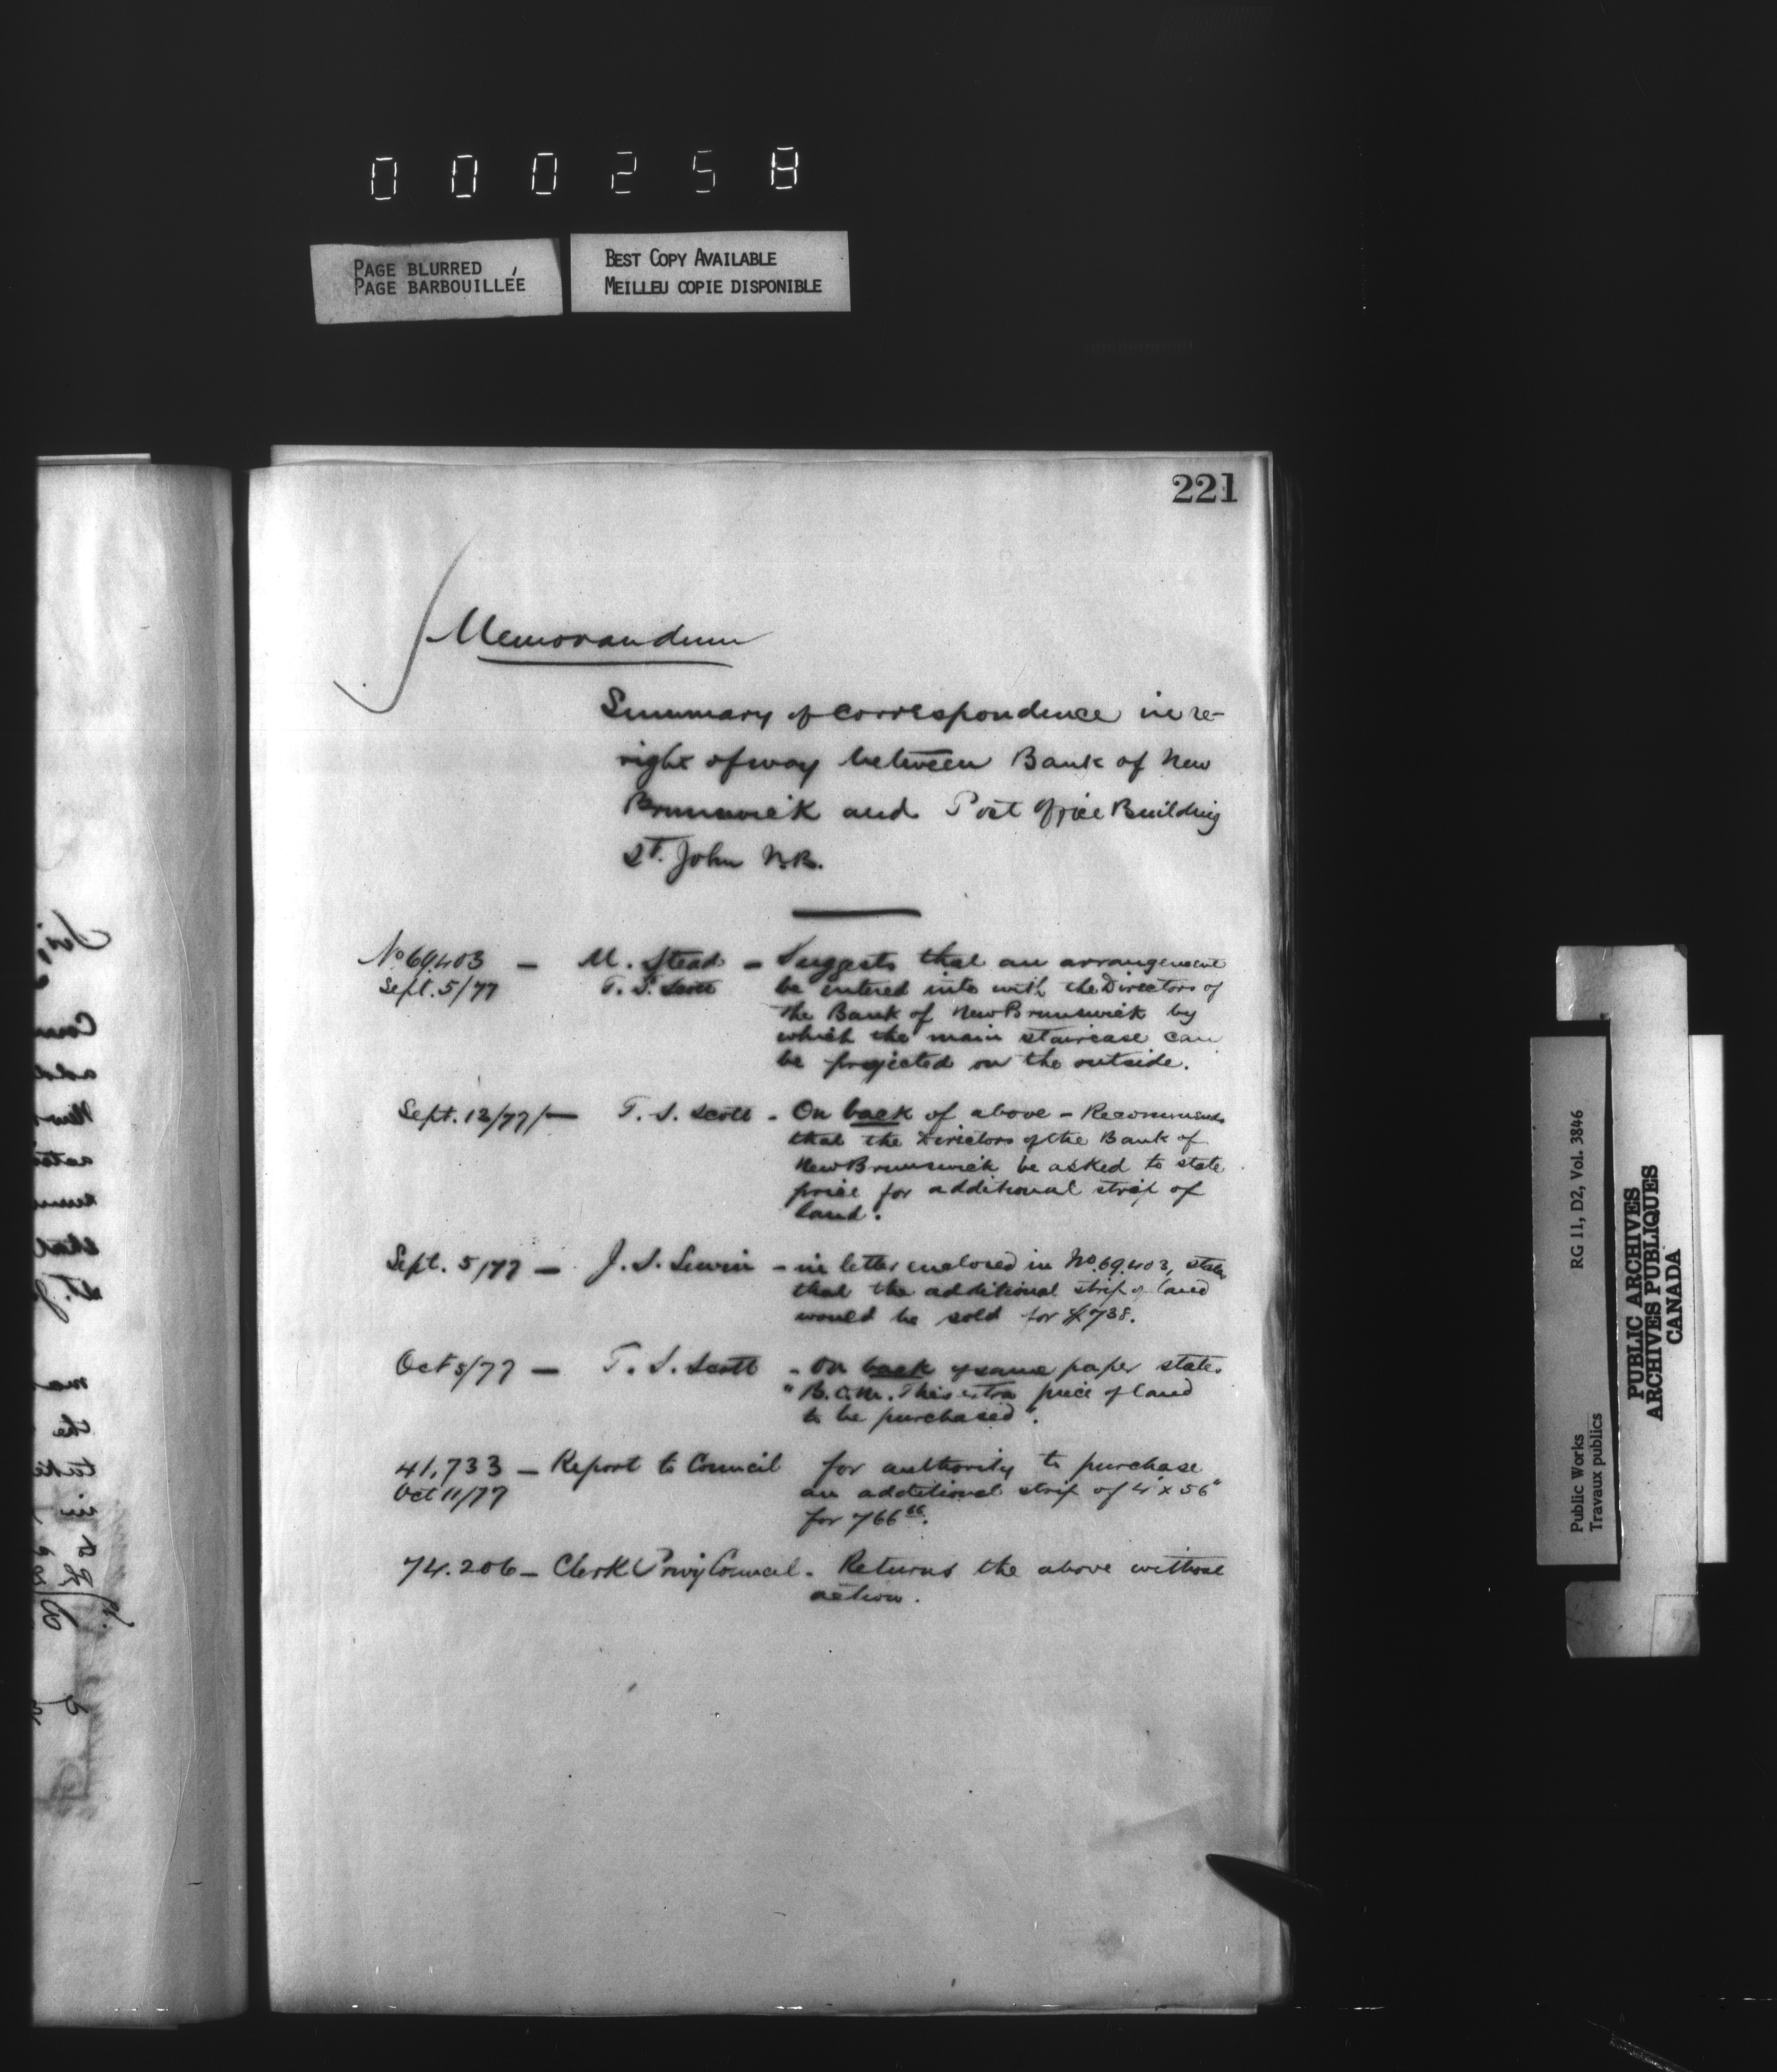 000258
PAGE BLURRED
PAGE BARBOUILLÉE
BEST COPY AVAILABLE
MEILLEU COPIE DISPONIBLE
221
Memorandum
Summary of correspondence in re-
right of way between Bank of New
Brunswick and Post Office Building
St. John N.B.
No 69403 – M. Stead – Suggests that an arrangement
Sept. 5/77 T. S. Scott be entered into with the Directors of
the Bank of New Brunswick by
which the main staircase can
be projected on the outside.
Sept. 13/77/– T. S. Scott - On back of above – Recommends
that the Directors of the Bank of
New Brunswick be asked to state
price for additional strip of
land.
Sept. 5/77 – J. S. Lewin - in letter enclosed in No. 69.403, states
that the additional strip of land
would be sold for $738.
Oct 5/77 – T. S. Scott - On back of same paper states
"B.C.M. This extra piece of land
to be purchased".
41,733 – Report to Council for authority to purchase
Oct 11/77 an additional strip of 4' x 56"
for 766 66.
74.206 – Clerk Privy Council. Returns the above without
action.
Public Works
Travaux publics
RG 11, D2, Vol. 3846
PUBLIC ARCHIVES
ARCHIVES PUBLIQUES
CANADA